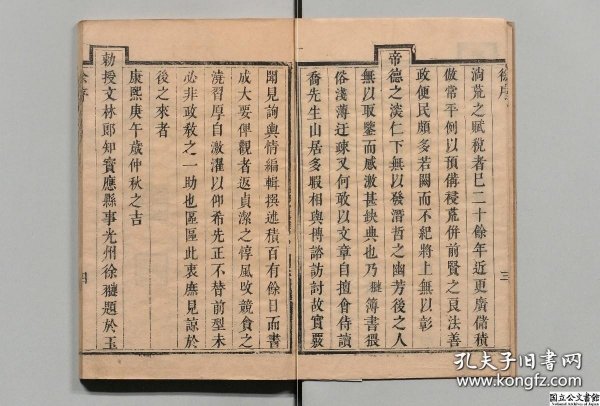 徐序
三
淌荒之賦稅者巳二十餘年近更廣儲積
倣常平例以預備稜荒併前賢之良法善
政便民頗多若闕而不紀將上無以彰
帝德之淡仁下無以發潛哲之幽芳後之人
無以取鑒而感激甚鈌典也乃 簿書猥
俗淺薄迂疎又何敢以文章自擅會侍讀
喬先生山居多暇相與博諮訪討故實覈
聞見詢輿情編輯撰述積百有餘日而書
成大要俾觀者返貞潔之惇風改競食之
澆習厚自激濯以仰希先正不替前型未
必非政教之一助也區區此衷庶見諒於
後之來者
康熙庚午歲仲秋之吉
勅授文林郎知寶應縣事光州徐 題於玉
徐序
四
孔夫子旧书网
www.kongfz.com
国立公文書館
National Archives of Japan